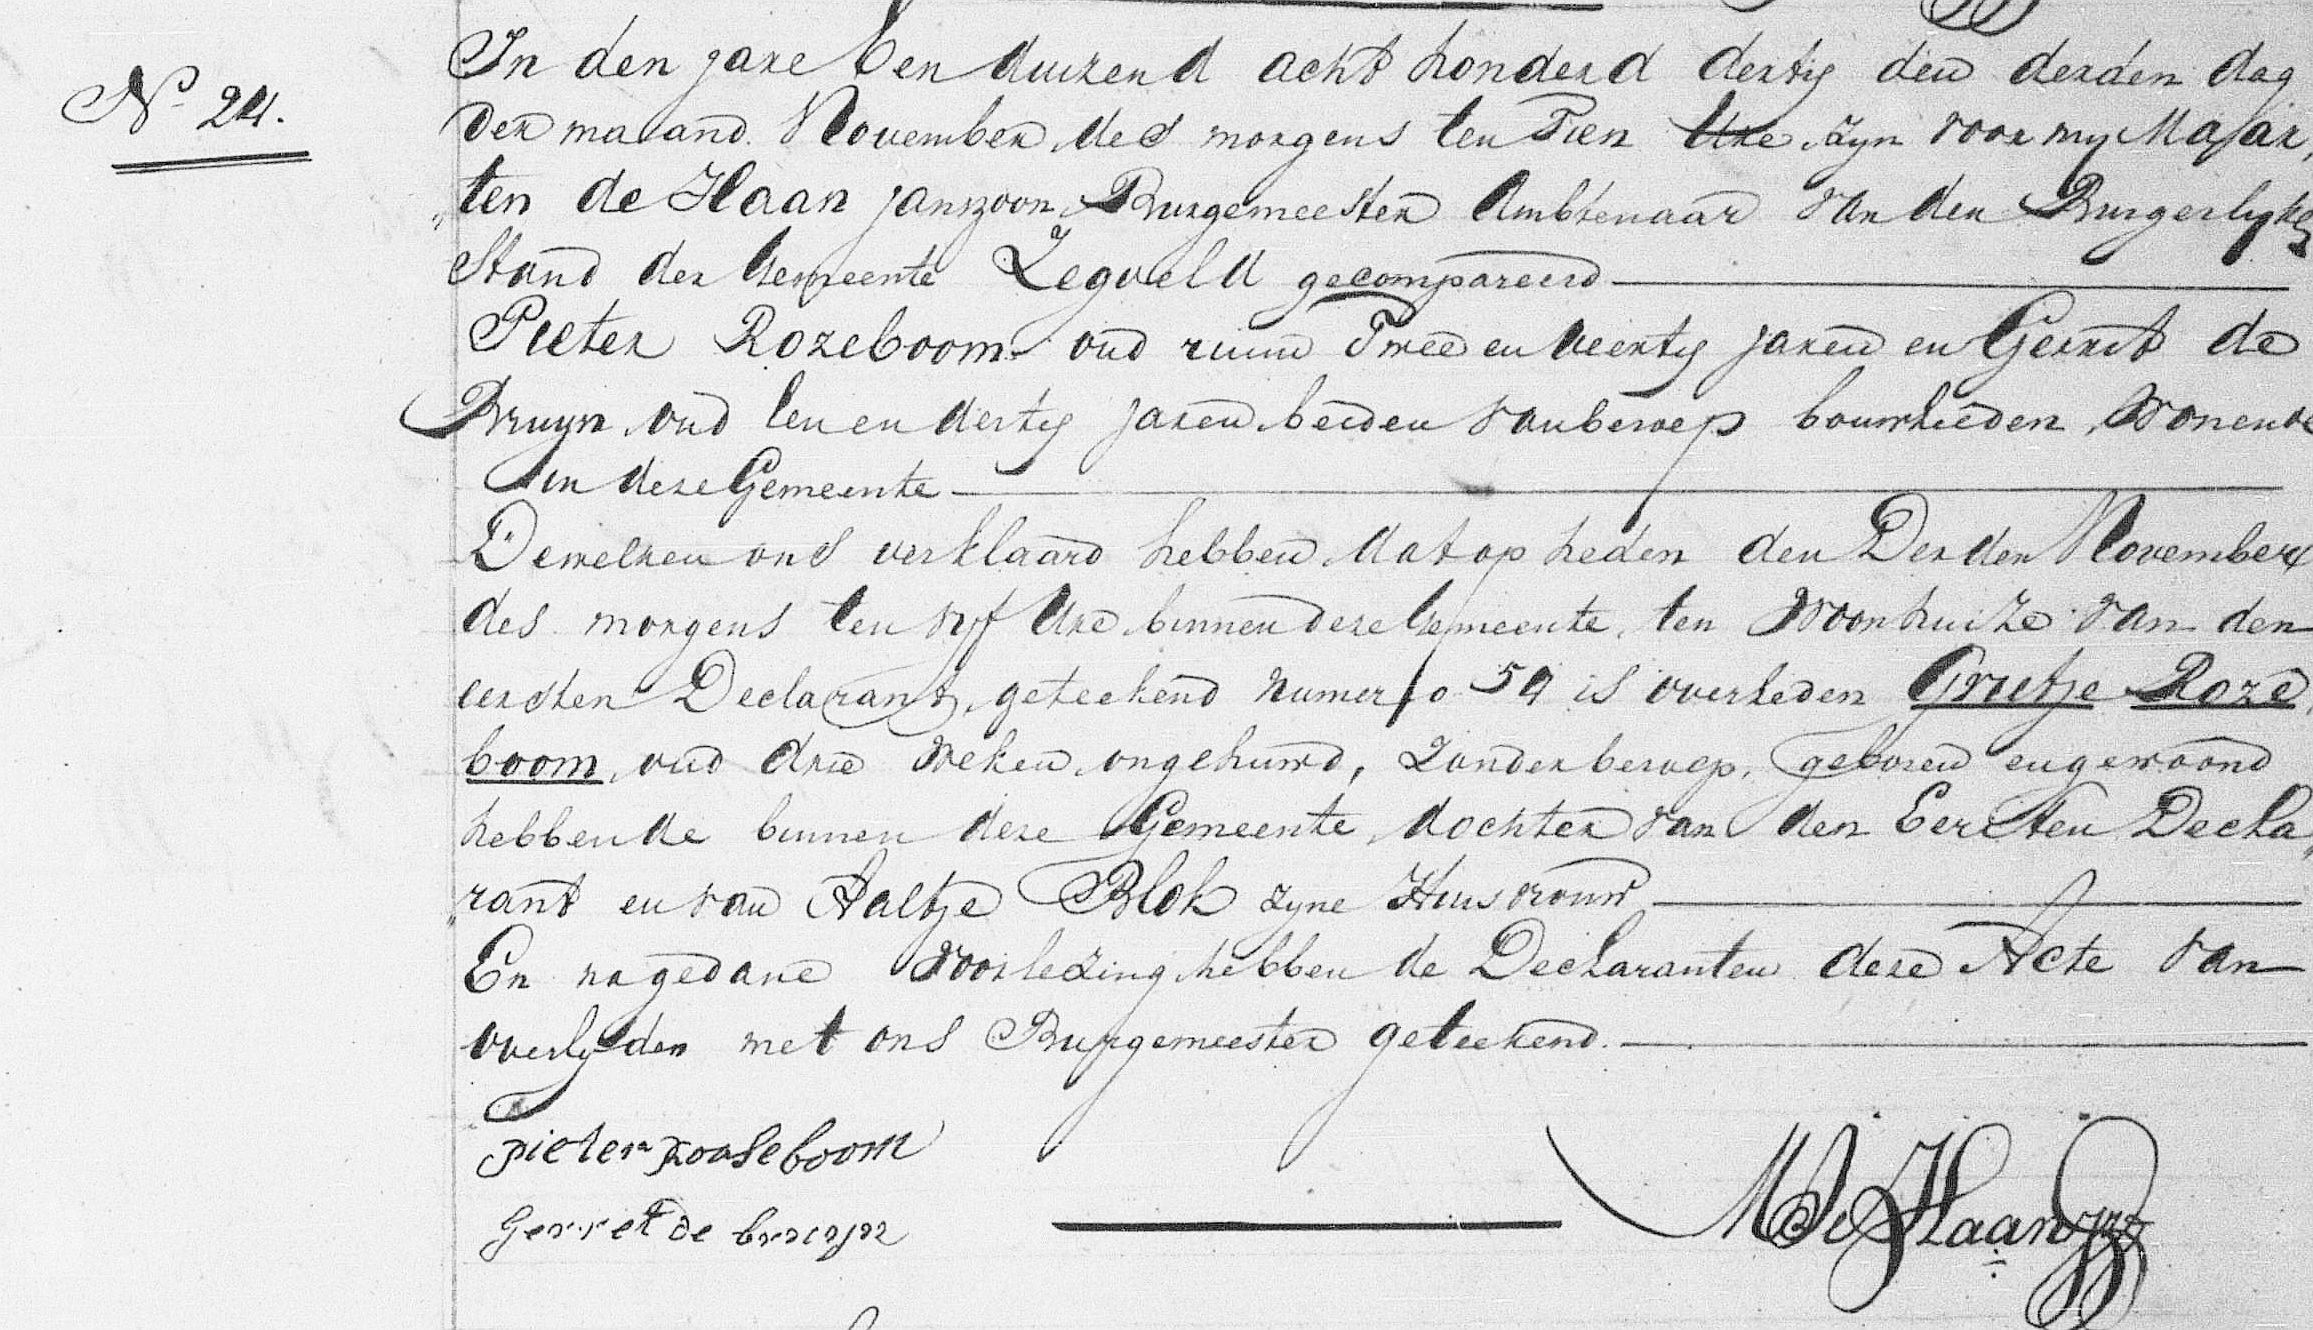 No 24.
In den jare Een duizend acht honderd dertig den derden dag
der maand November des morgens ten Tien Ure zyn voor my Maar„
„ten de Haan janszoon Burgemeester Ambtenaar van den Burgerlyke
Stand der Gemeente Zegveld gecompareerd
Pieter Rozeboom oud ruim Twee en veertig jaren en Gerrit de
Bruyn oud een en dertig jaren beiden van beroep bouwlieden, wonende
in deze Gemeente
Dewelken ons verklaard hebben dat op heden den Derden November
des morgens ten vyf Ure binnen deze Gemeente, ten Woonhuize van den
eersten Declarant, geteekend numero 54 is overleden Grietje Roze
boom, oud drie weken ongehuwd, Zonder beroep, geboren en gewoond
hebbende binnen deze Gemeente, dochter van den Eersten Decla„
„rant en van Aaltje Blok zyne Huisvrouw
En na gedane Voorlezing hebben de Declaranten deze Acte van
overlyden met ons Burgemeester geteekend.
pieter rooseboom
Gerret de bruyn
M De Haan JZ